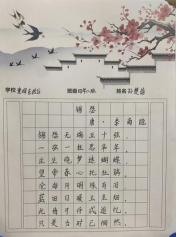 学校 班级 姓名
锦瑟
唐·李商隐
锦瑟无端五十弦，
一弦一柱思华年。
庄生晓梦迷蝴蝶，
望帝春心托杜鹃。
沧海月明珠有泪，
蓝田日暖玉生烟。
此情可待成追忆，
只是当时已惘然。